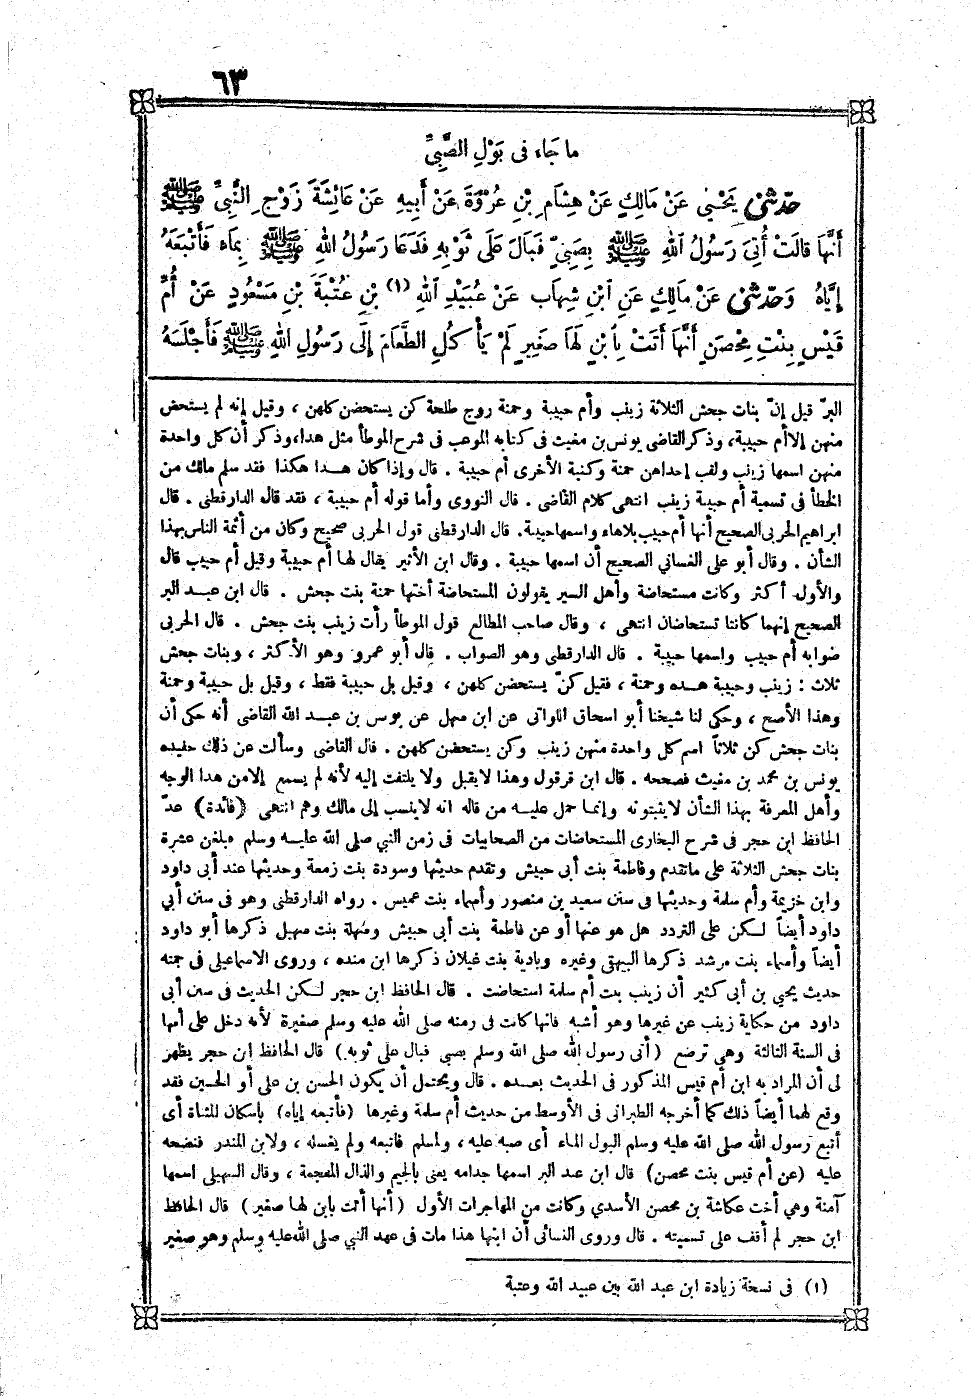 ٦٣
ما جَاء فى بَوْلِ الصَّبِىِّ
حدّثنى يَحْيىٰ عَنْ مَالِكٍ عَنْ هِشَامِ بْنِ عُرْوَةَ عَنْ أَبِيهِ عَنْ عَائِشَةَ زَوْجِ النَّبِىِّ ﷺ
أَنَّهَا قالَتْ أُتِىَ رَسُولُ ٱللهِ ﷺ بِصَبِىٍّ فَبَالَ عَلَى ثَوْبِهِ فَدَعَا رَسُولُ اللهِ ﷺ بِمَاء فَأَتْبَعَهُ
إِيَّاهُ وَحدّثنى عَنْ مَالِكٍ عَنِ ٱبْنِ شِهَاب عَنْ عُبَيْدِ ٱللهِ (١) بْنِ عُتْبَةَ بْنِ مَسْعُودٍ عَنْ أُمِّ
قَيْسٍ بِنْتِ مِحْصَنٍ أَنَّهَا أَتَتْ بِٱبْنٍ لَهَا صَغِيرٍ لَمْ يَأْكُلِ الطَّعَامَ إِلَى رَسُولِ اللهِ ﷺ فَأَجْلَسَهُ
البرّ قيل إنّ بنات جحش الثلاثة زينب وأم حبيبة وحمنة زوج طلحة كن يستحضن كلهن ، وقيل إنه لم يستحض
منهن إلا أم حبيبة، وذكر القاضى يونس بن مغيث فى كتابه الموعب فى شرح الموطأ مثل هذا، وذكر أن كل واحدة
منهن اسمها زينب ولقب إحداهن حمنة وكنية الأخرى أم حبيبة . قال وإذا كان هــذا هكذا فقد سلم مالك من
الخطأ فى تسمية أم حبيبة زينب انتهى كلام القاضى . قال النووى وأما قوله أم حبيبة ، فقد قال الدارقطنى . قال
ابراهيم الحربى الصحيح أنها أم حبيب بلاهاء واسمها حبيبة. قال الدارقطنى قول الحربى صحيح وكان من أئمة الناس بهذا
الشأن . وقال أبو على الغسانى الصحيح أن اسمها حبيبة . وقال ابن الأثير يقال لهـا أم حبيبة وقيل أم حبيب قال
والأول أكثر وكانت مستحاضة وأهل السير يقولون المستحاضة أختها حمنة بنت جحش . قال ابن عبـد البر
الصحيح إنهما كانتا تستحاضان انتهى ، وقال صاحب المطالع قول الموطأ رأت زينب بنت جحش . قال الحربى
صوابه أم حبيب واسمها حبيبة . قال الدارقطنى وهو الصواب . قال أبو عمرو وهو الأكثر ، وبنات جحش
ثلاث : زينب وحبيبة هــذه وحمنة ، فقيل كنّ يستحضن كلهن ، وقيل بل حبيبة فقط ، وقيل بل حبيبة وحمنة
وهذا الأصح ، وحكى لنا شيخنا أبو اسحاق اللواتى عن ابن سهل عن يونس بن عبـد الله القاضى أنه حكى أن
بنات جحش كن ثلاثاً اسم كل واحدة منهن زينب وكن يستحضن كلهن . قال القاضى وسألت عن ذلك حفيده
يونس بن محمد بن مغيث فصححه . قال ابن قرقول وهذا لايقبل ولا يلتفت إليه لأنه لم يسمع إلا من هذا الوجه
وأهل المعرفة بهذا الشأن لايثبتونه وإنمـا حمل عليــه من قاله انه لاينسب إلى مالك وهم انتهى (فائدة) عدّ
الحافظ ابن حجر فى شرح البخارى المستحاضات من الصحابيات فى زمن النبي صلى الله عليــه وسلم فبلغن عشرة
بنات جحش الثلاثة على ماتقدم وفاطمة بنت أبى حبيش وتقدم حديثها وسودة بنت زمعة وحديثها عند أبى داود
وابن خزيمة وأم سلمة وحديثها فى سنن سعيد بن منصور وأسماء بنت عميس . رواه الدارقطنى وهو فى سنن أبي
داود أيضاً لـكن على التردد هل هو عنها أو عن فاطمة بنت أبى حبيش وسهلة بنت سهيل ذكرها أبو داود
أيضاً وأسماء بنت مرشد ذكرها البيهقى وغيره وبادية بنت غيلان ذكرها ابن منده ، وروى الاسماعيلى فى جمعه
حديث يحيي بن أبى كثير أن زينب بنت أم سلمة استحاضت . قال الحافظ ابن حجر لـكن الحديث فى سنن أبى
داود من حكاية زينب عن غيرها وهو أشبه فانها كانت فى زمنه صلى الله عليه وسلم صغيرة لأنه دخل على أمها
فى السنة الثالثة وهى ترضع (أتى رسول الله صلى الله وسلم بصبى فبال على ثوبه) قال الحافظ ابن حجر يظهر
لى أن المراد به ابن أم قيس المذكور فى الحديث بعــده . قال ويحتمل أن يكون الحسن بن على أو الحسين فقد
وقع لهما أيضاً ذلك كما أخرجه الطبرانى فى الأوسط من حديث أم سلمة وغيرها (فأتبعه إياه) باسكان المثناة أى
أتبع رسول الله صلى الله عليه وسلم البول المـاء أى صبه عليه ، ولمسلم فاتبعه ولم يغسله ، ولابن المنذر فنضحه
عليه (عن أم قيس بنت محصن) قال ابن عبد البر اسمها جذامه يعنى بالجيم والذال المعجمة ، وقال السهيلى اسمها
آمنة وهي أخت عكاشة بن محصن الأسدي وكانت من المهاجرات الأول (أنها أتت بابن لهـا صغير) قال الحافظ
ابن حجر لم أقف على تسميته . قال وروى النسائى أن ابنها هذا مات فى عهد النبي صلى الله عليه وسلم وهو صغير
(١) فى نسخة زيادة ابن عبد الله بين عبيد الله وعتبة